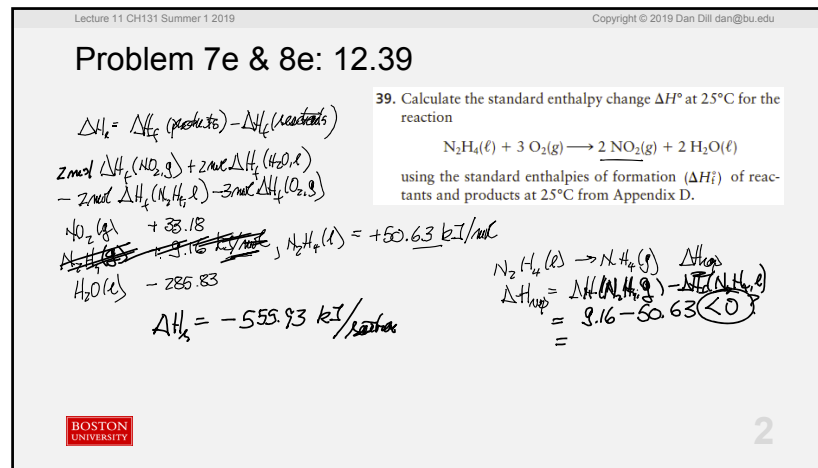 Lecture 11 CH131 Summer 1 2019
Copyright © 2019 Dan Dill dan@bu.edu
Problem 7e & 8e: 12.39
39. Calculate the standard enthalpy change ΔH° at 25°C for the
reaction
N₂H₄(ℓ) + 3 O₂(g) ⟶ 2 NO₂(g) + 2 H₂O(ℓ)
using the standard enthalpies of formation (ΔH°f) of reac-
tants and products at 25°C from Appendix D.
ΔHᵣ = ΔHf (products) - ΔHf (reactants)
2 mol ΔHf (NO₂, g) + 2 mol ΔHf (H₂O, ℓ)
- 2 mol ΔHf (N₂H₄, ℓ) - 3 mol ΔHf (O₂, g)
NO₂ (g) + 33.18
N₂H₄(g) + 9.16 kJ/mol, N₂H₄(ℓ) = +50.63 kJ/mol
H₂O(ℓ) - 285.83
ΔHᵣ = -555.93 kJ/reaction
N₂H₄(ℓ) → NH₄(g) ΔHvap
ΔHvap = ΔH(N₂H₄, g) - ΔHf(N₂H₄, ℓ)
= 9.16 - 50.63 < 0 ?
=
BOSTON
UNIVERSITY
2